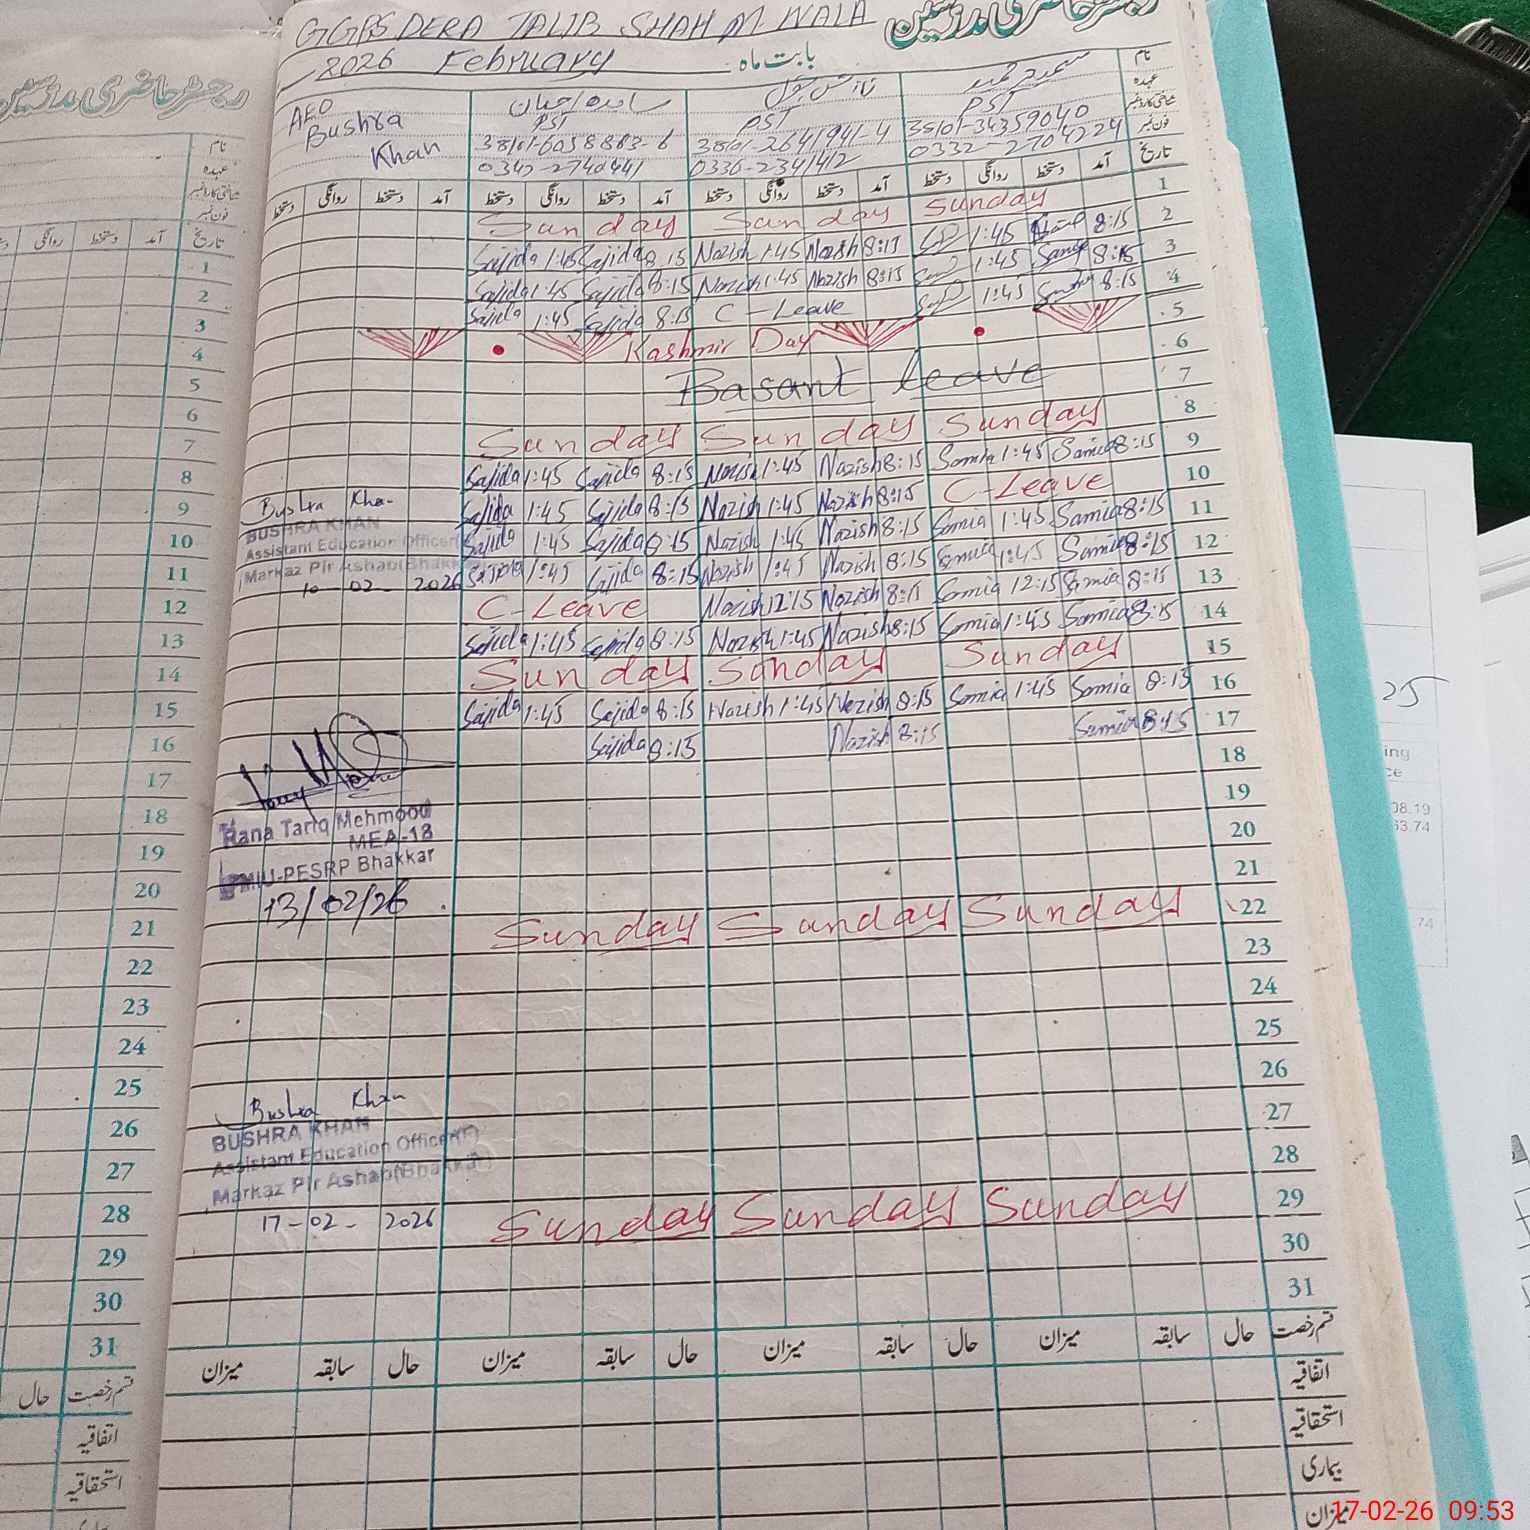 GGPS DERA TALIB SHAH M WALA
رجسٹر حاضری مدرسین
2026 February بابت ماہ
نام
عہدہ
شناختی کارڈ نمبر
فون نمبر
AEO
Bushra
Khan
PST
38101-6058883-6
0342-2740441
PST
38101-2641941-4
0336-2341412
PST
0332-2704224
تاریخ آمد دستخط روانگی دستخط آمد دستخط روانگی دستخط آمد دستخط روانگی دستخط آمد دستخط روانگی دستخط
Sunday Sunday Sunday 1
Sajida 1:45 Sajida 8:15 Nazish 1:45 Nazish 8:15 1:45 8:15 2
Sajida 1:45 Sajida 8:15 Nazish 1:45 Nazish 8:15 1:45 8:15 3
Sajida 1:45 Sajida 8:15 C-Leave 1:45 8:15 4
Kashmir Day 5
Basant leave 6
7
Sunday Sunday Sunday 8
Sajida 1:45 Sajida 8:15 Nazish 1:45 Nazish 8:15 Samia 1:45 Samia 8:15 9
Sajida 1:45 Sajida 8:15 Nazish 1:45 Nazish 8:15 C-Leave 10
Sajida 1:45 Sajida 8:15 Nazish 1:45 Nazish 8:15 Samia 1:45 Samia 8:15 11
Sajida 1:45 Sajida 8:15 Nazish 1:45 Nazish 8:15 Samia 1:45 Samia 8:15 12
C-Leave Nazish 12:15 Nazish 8:15 Samia 12:15 Samia 8:15 13
Sajida 1:45 Sajida 8:15 Nazish 1:45 Nazish 8:15 Samia 1:45 Samia 8:15 14
Sunday Sunday Sunday 15
Sajida 1:45 Sajida 8:15 Nazish 1:45 Nazish 8:15 Samia 1:45 Samia 8:15 16
Sajida 8:15 Nazish 8:15 Samia 8:15 17
18
19
20
21
Sunday Sunday Sunday 22
23
24
25
26
27
28
Sunday Sunday Sunday 29
30
31
Bushra Khan
BUSHRA KHAN
Assistant Education Officer
Markaz Pir Ashab (Bhakkar)
10-02-2026
Rana Tariq Mehmood
MEA-18
PMIU-PESRP Bhakkar
13/02/26
Bushra Khan
BUSHRA KHAN
Assistant Education Officer(F)
Markaz Pir Ashab (Bhakkar)
17-02-2026
قسم رخصت حال سابقہ میزان حال سابقہ میزان حال سابقہ میزان حال سابقہ میزان
اتفاقیہ
استحقاقیہ
بیماری
میزان
رجسٹر حاضری مدرسین
نام
عہدہ
شناختی کارڈ نمبر
فون نمبر
تاریخ آمد دستخط روانگی
1
2
3
4
5
6
7
8
9
10
11
12
13
14
15
16
17
18
19
20
21
22
23
24
25
26
27
28
29
30
31
قسم رخصت حال
اتفاقیہ
استحقاقیہ
25
17-02-26 09:53